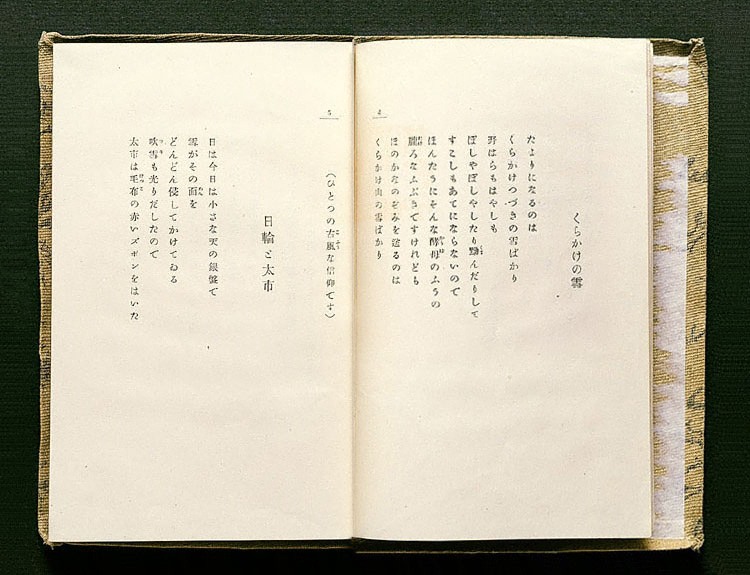 くらかけの雪
たよりになるのは
くらかけつづきの雪ばかり
野はらもはやしも
ぽしやぽしやしたり黝んだりして
すこしもあてにならないので
ほんたうにそんな酵母のふうの
朧ろなふぶきですけれども
ほのかなのぞみを送るのは
くらかけ山の雪ばかり
4
5
(ひとつの古風な信仰です)
日輪と太市
日は今日は小さな天の銀盤で
雲がその面を
どんどん侵してかけてゐる
吹雪も光りだしたので
太市は毛布の赤いズボンをはいた